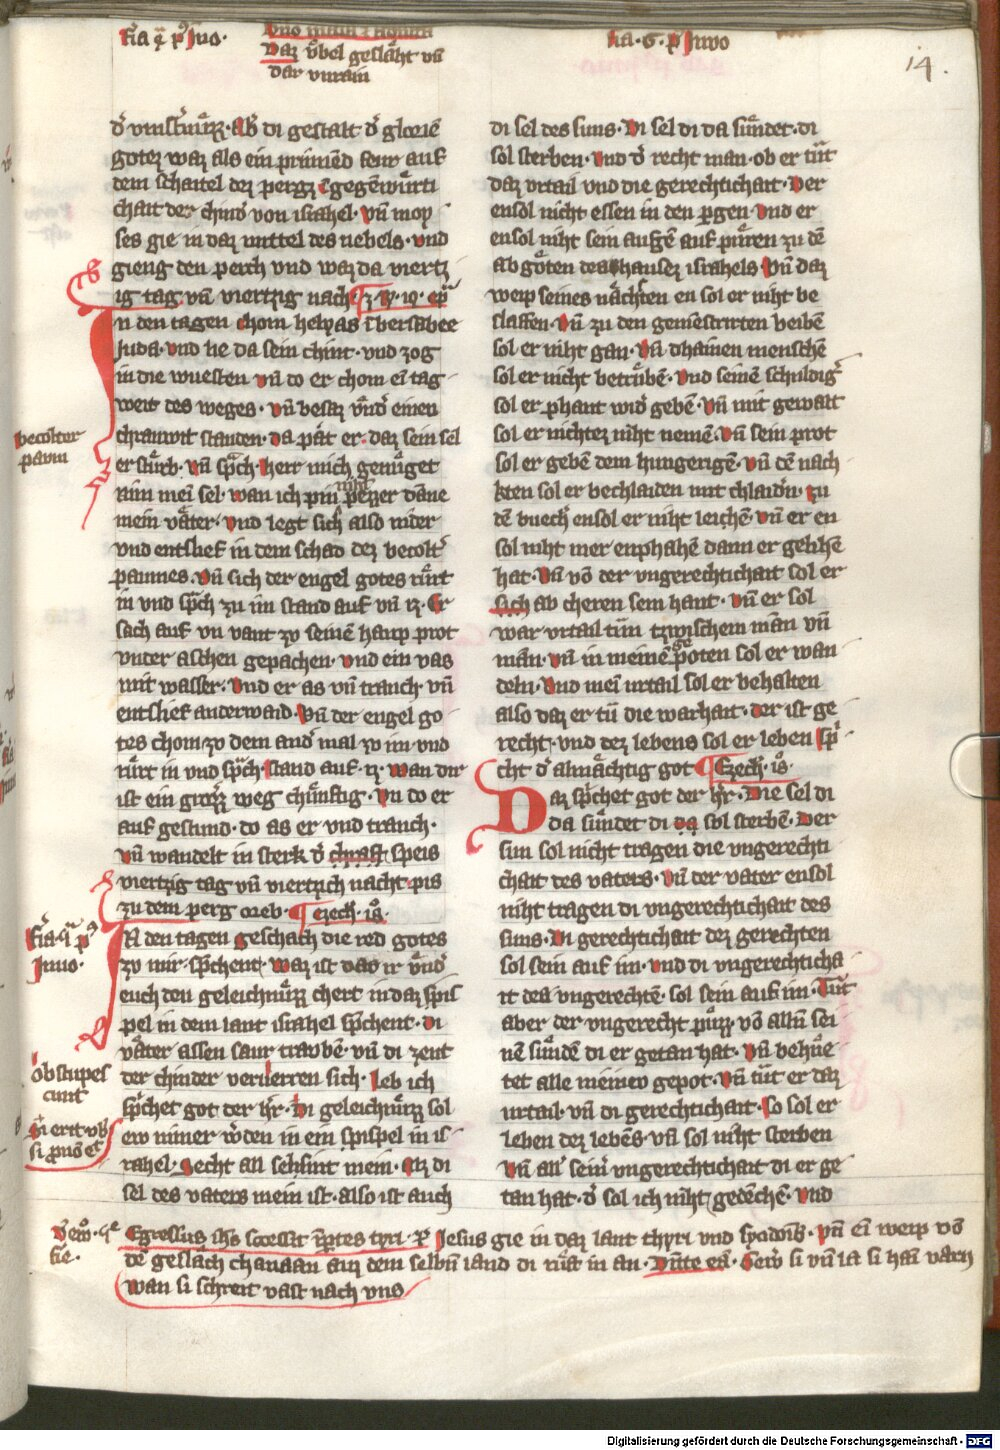 Daz vͤbel geslaͤht vn̄
dar vmain
14.
d' vinst'nuͤzz · Ab' di gestalt d' glorıē
gotez waz als ein prinnēd feur auf
dem schaitel dez pergz ī gegēwuͤrti
chait der chind' von israhel · vn̄ moy
ses gie in daz mittel des nebels · vnd
gieng den perch vnd waz da viertz
ig tag vn̄ viertzig nacht
n den tagen chom helyas ī bersabee
Juda · vnd lie da sein chint · vnd zog
in die wuesten vn̄ do er chom eī tag
weit des weges · vn̄ besaz vnd' einen
chranwit stauden · da pat er · daz sein sel
er stuͤrb · vn̄ sp̄ch · herr mich genuͤget
nim mei sel · wan ich pin niht pezzer dāne
mein vaͤter · vnd legt sich also nider
vnd entslief in dem schad dez becolt'
paumes · vn̄ sich der engel gotes ruͤrt
in vnd sp̄ch zu im stand auf vn̄ iz · Er
sach auf vn̄ vant zu seinē haup prot
vnter aschen gepachen · vnd ein vas
mit wasser · vnd er as vn̄ tranch vn̄
entslief anderwaid · vn̄ der engel go
tes chom zu dem and' mal zu im vnd
ruͤrt in vnd sp̄ch · stand auf · iz · wan dir
ist ein grozz weg chuͤnftig · vn̄ do er
auf gestund · do as er vnd tranch ·
vn̄ wandelt in sterk d' chraft speis
viertzig tag vn̄ viertzich nacht pis
zu dem perg oreb · Ezech · 18 ·
N den tagen geschach die red gotes
zu mir · sp̄chent · waz ist daz ir vnd'
euch den geleichnuͤzz chert in daz spil
pel in dem lant israhel sp̄chent · di
vaͤter assen saur traubē · vn̄ di zent
der chinder verirrten sich · leb ich
sp̄chet got der h'r · Di geleichnuͤzz sol
ew nimer w'den in ein spispel in is
rahel · Secht all sel sint mein · Az di
sel des vaters mein ist · also ist auch
becolter
paum
obstupes
cunt
di sel des suns · Di sel di da suͤndet · di
sol sterben · vnd d' recht man · ob er tuͤt
daz vrtail vnd die gerechtichait · Der
ensol nicht essen in den p̄gen · vnd er
ensol niht sein augē auf puͤren zu dē
abgoͤten dez hausez israhels · vn̄ daz
weip seines naͤchsten en sol er niht be
slaffen · vn̄ zu den gemestruten veibē
sol er niht gan · vn̄ dhainen menschē
sol er nicht betruͤbē · vnd seinē schuldig'
sol er phant wid' gebē · vn̄ mit gewalt
sol er nichtez niht nemē · vn̄ sein prot
sol er gebē dem hungerigē · vn̄ dē nach
kten sol er bechlaiden mit chlaidn̄ · zu
dē buech' ensol er niht leichē · vn̄ er en
sol niht mer enphahē dann er gelihē
hat · vn̄ vō der vngerechtichait sol er
sich ab cheren sein hant · vn̄ er sol
war vrtail tun tzwischem man vn̄
man · vn̄ in meinē gepoten sol er wan
deln · vnd mei vrtail sol er behalten
also daz er tū die warhait · der ist ge
recht · vnd dez lebens sol er leben sp̄
cht d' almaͤchtig got Ezech · 18 ·
Daz sp̄chet got der h'r · Die sel di
da suͤndet di da sol sterbē · Der
sun sol nicht tragen die vngerechti
chait des vaters · vn̄ der vater ensol
niht tragen di vngerechtichait des
suns · Di gerechtichait dez gerechten
sol sein auf im · vnd di vngerechticha
it des vngerechtē · sol sein auf im · Tuͤt
aber der vngerecht puͤzz vō alln̄ sei
nē suͤndē di er getan hat · vn̄ behuͤe
tet alle meinew gepot · vn̄ tuͤt er daz
urtail · vn̄ di gerechtichait · so sol er
leben dez lebēs · vn̄ sol niht sterben
vn̄ all' sein' vngerechtichait di er ge
tan hat · d' sol ich niht gedēchē · vnd
Egressus ihs secessit in partes tyri · Jesus gie in daz lant thyri vnd sydonis · vn̄ eī weip vō
dē geslaͤch chanaan auz dem selbn̄ land di ruͤft in an · Dimitte eā
wan si schreit vast nach vns
Digitalisierung gefördert durch die Deutsche Forschungsgemeinschaft · DFG